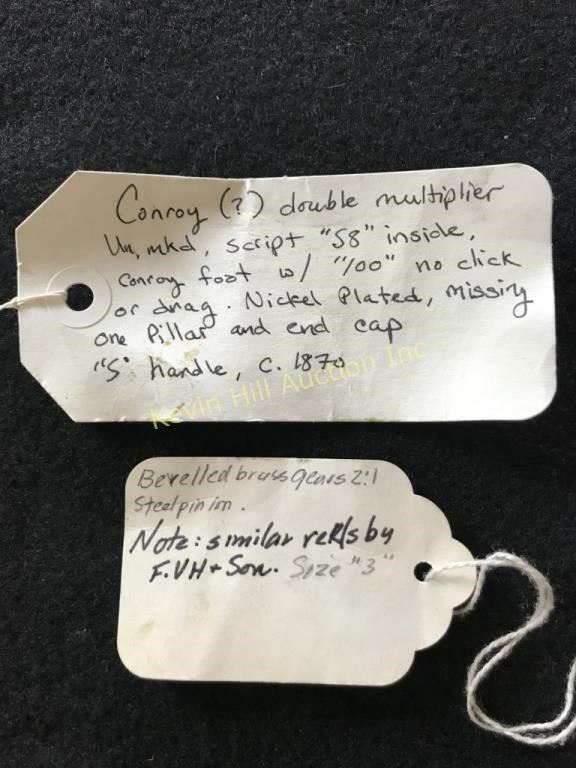 Conroy (?) double multiplier
Un, mkd, script "58" inside,
Conroy foot w/ "100" no click
or drag. Nickel Plated, missing
one Pillar and end cap
"S" handle, c. 1870
Kevin Hill Auction Inc
Bevelled brass gears 2:1
Steel pinion.
Note: similar reels by
F.VH + Son. Size "3"